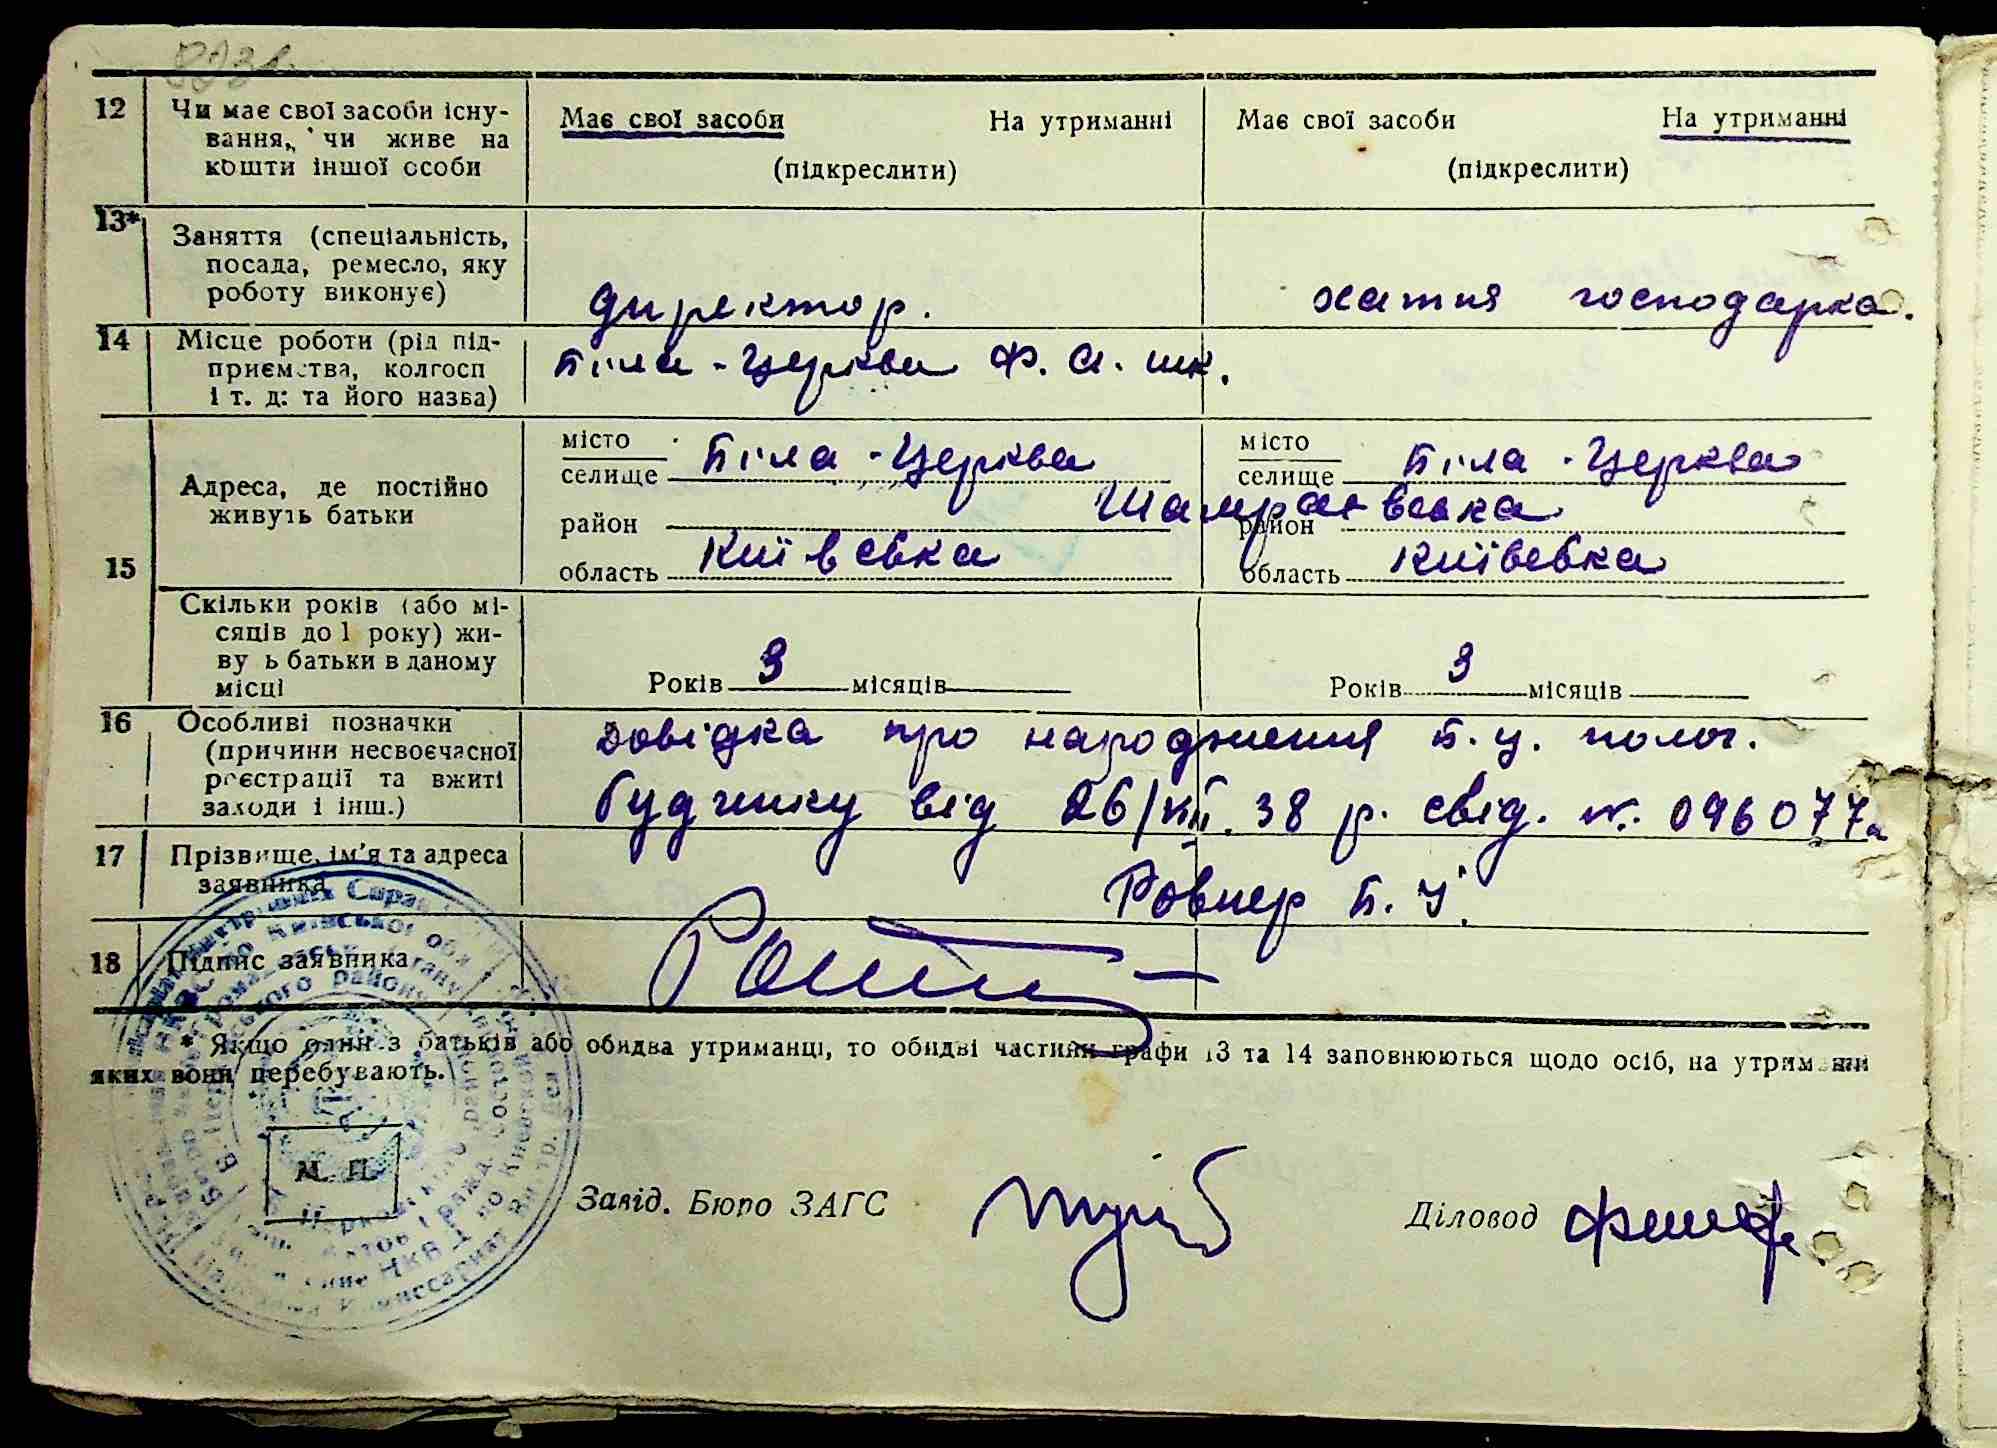 12
Чи має свої засоби існу-
вання, чи живе на
кошти іншої особи
Має свої засоби На утриманні
(підкреслити)
Має свої засоби На утриманні
(підкреслити)
13*
Заняття (спеціальність,
посада, ремесло, яку
роботу виконує)
директор.
хатня господарка.
14
Місце роботи (рід під-
приємства, колгосп
і т. д: та його назва)
Біла-Церква Ф. А. шк.
15
Адреса, де постійно
живуть батьки
місто
селище Біла-Церква
район
область Київсвка
місто
селище Біла-Церква
район
область Київсвка
Скільки років (або мі-
сяців до 1 року) жи-
ву ь батьки в даному
місці
Років 3 місяців
Років 3 місяців
16
Особливі позначки
(причини несвоєчасної
реєстрації та вжиті
заходи і інш.)
Довідка про народження Б. Ц. полог.
будинку від 26/XII. 38 р. свід. №. 096077
17
Прізвище, ім'я та адреса
заявника
Ровнер Б. У.
18
Підпис заявника
* Якщо один з батьків або обидва утриманці, то обидві частини графи 13 та 14 заповнюються щодо осіб, на утриманні
яких вони перебувають.
М. П.
Завід. Бюро ЗАГС
Діловод